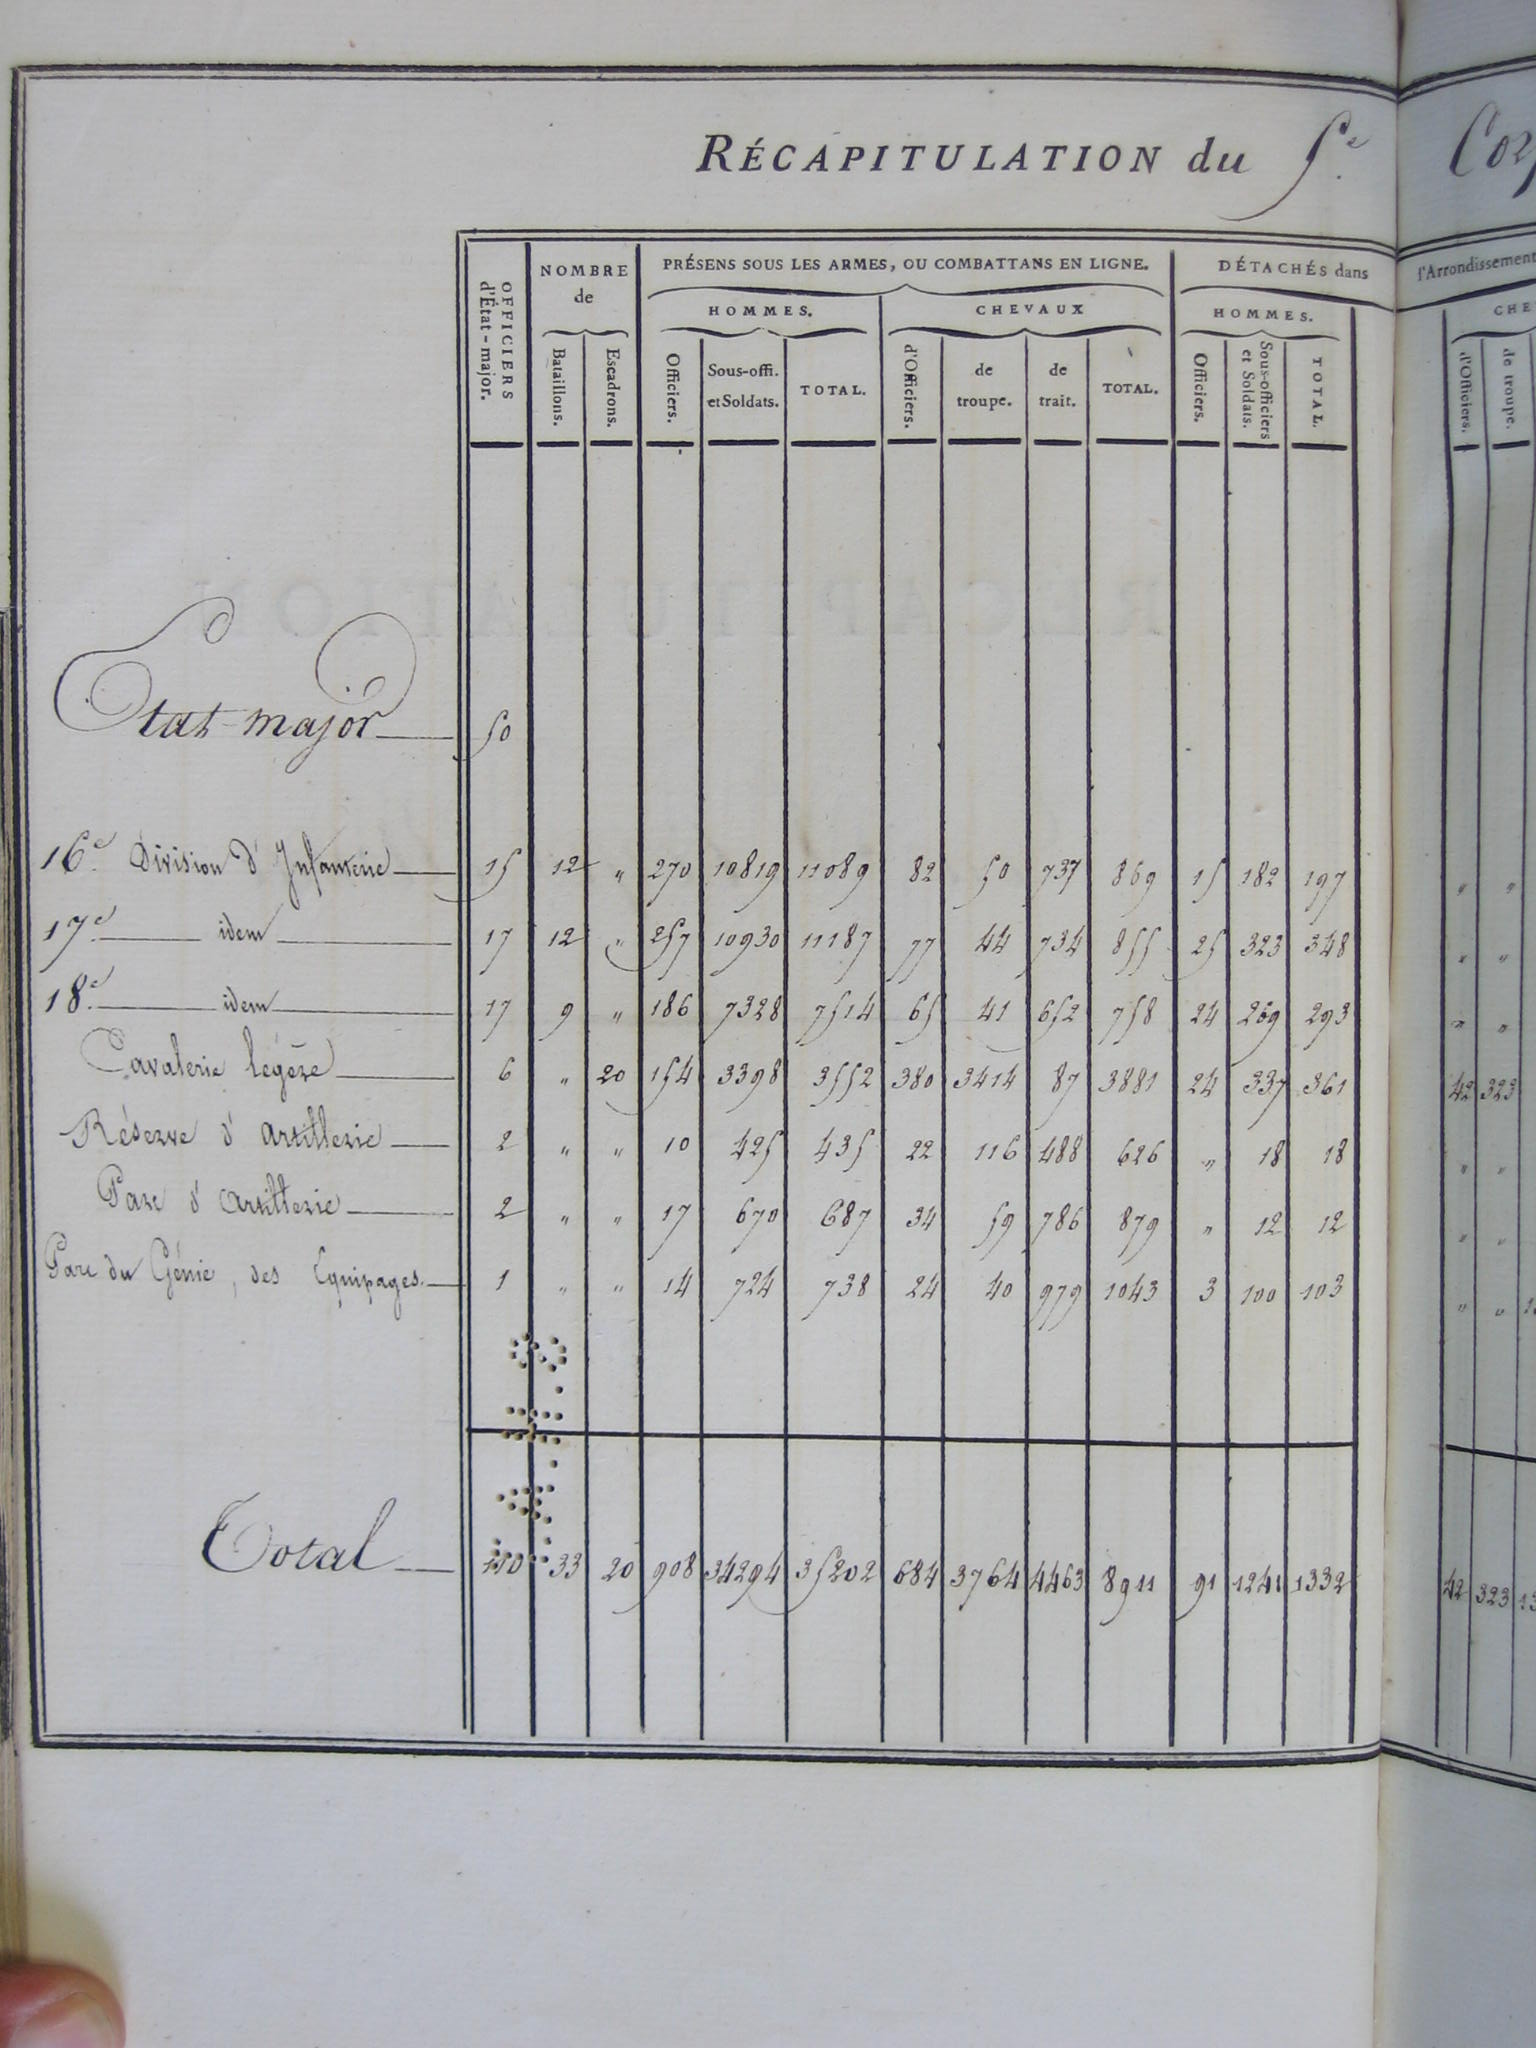 RÉCAPITULATION du 5e. Corp
OFFICIERS d'État-major.
NOMBRE de
Bataillons.
Escadrons.
PRÉSENS SOUS LES ARMES, OU COMBATTANS EN LIGNE.
HOMMES.
Officiers.
Sous-offi. et Soldats.
TOTAL.
CHEVAUX
d'Officiers.
de troupe.
de trait.
TOTAL.
DÉTACHÉS dans l'Arrondissement
HOMMES.
Officiers.
Sous-officiers et Soldats.
TOTAL.
CHE
d'Officiers.
de troupe.
Etat-major 50
16e. Division d'Infanterie 15 12 " 270 10819 11089 82 50 737 869 15 182 197 " "
17e. idem 17 12 " 257 10930 11187 77 44 734 855 25 323 348 " "
18e. idem 17 9 " 186 7328 7514 65 41 652 758 24 269 293 " "
Cavalerie légère 6 " 20 154 3398 3552 380 3414 87 3881 24 337 361 42 323
Réserve d'artillerie 2 " " 10 425 435 22 116 488 626 " 18 18 " "
Parc d'artillerie 2 " " 17 670 687 34 59 786 879 " 12 12 " "
Parc du Génie, des Equipages. 1 " " 14 724 738 24 40 979 1043 3 100 103 " "
Total 110 33 20 908 34294 35202 684 3764 4463 8911 91 1241 1332 42 323 13